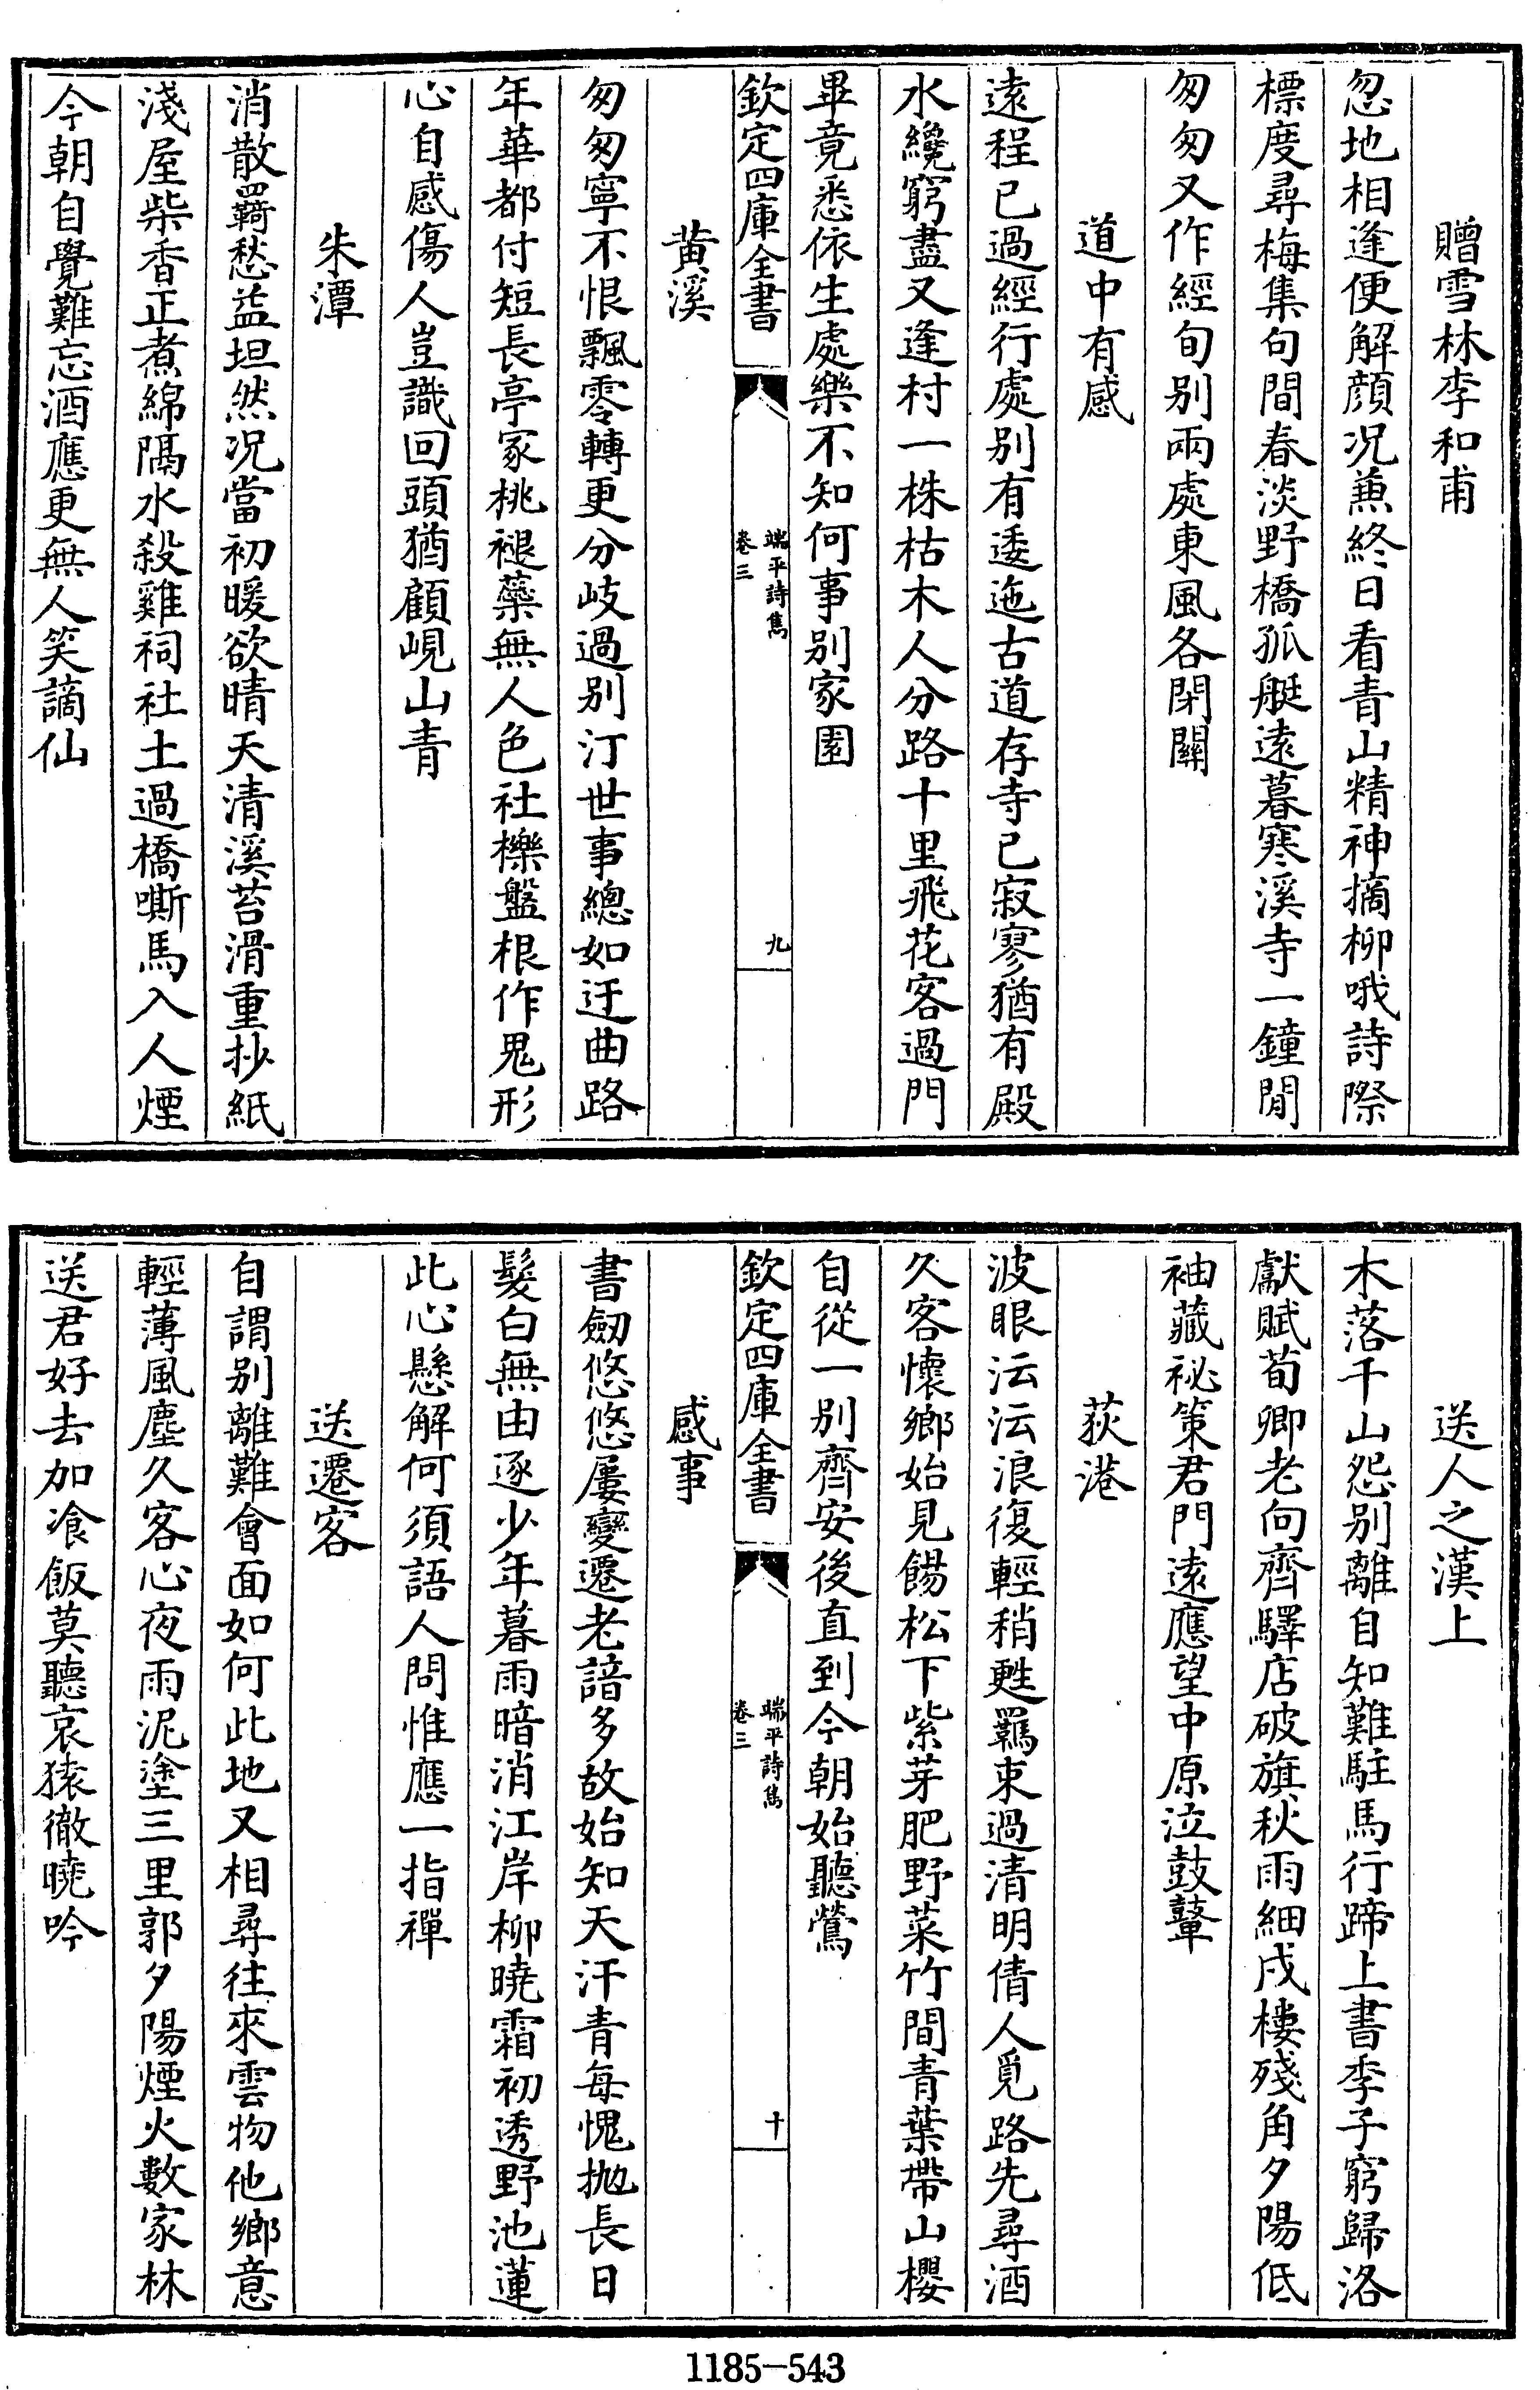 贈雪林李和甫
忽地相逢便解顔况蕉終日看青山精神摘柳哦詩際
標度尋梅集句間春淡野橋孤艇遠暮寒溪寺一鐘閒
匆匆又作經旬别兩處東風各閉關
道中有感
遠程已過經行處别有逶迤古道存寺已寂寥猶有殿
水纔窮盡又逢村一株枯木人分路十里飛花客過門
畢竟悉依生處樂不知何事别家園
欽定四庫全書
端平詩雋
卷三
九
黄溪
匆匆寧不恨飄零轉更分岐過别汀世事總如迂曲路
年華都付短長亭冢桃褪藥無人色社櫟盤根作鬼形
心自感傷人豈識回頭猶顧峴山青
朱潭
消散羇愁益坦然况當初暖欲晴天清溪苔滑重抄紙
淺屋柴香正煮綿隔水殺雞祠社土過橋嘶馬入人煙
今朝自覺難忘酒應更無人笑謫仙
送人之漢上
木落千山怨别離自知難駐馬行蹄上書季子窮歸洛
獻賦荀卿老向齊驛店破旗秋雨細戍樓殘角夕陽低
袖藏祕策君門遠應望中原泣鼓鼙
荻港
波眼沄沄浪復輕稍甦羈束過清明倩人覓路先尋酒
久客懷鄉始見餳松下紫芽肥野菜竹間青葉帶山櫻
自從一别齊安後直到今朝始聽鶯
欽定四庫全書
端平詩雋
卷三
十
感事
書劒悠悠屢變遷老諳多故始知天汗青每愧抛長日
髮白無由逐少年暮雨暗消江岸柳曉霜初透野池蓮
此心懸解何須語人問惟應一指禪
送遷客
自謂别離難會面如何此地又相尋往來雲物他鄉意
輕薄風塵久客心夜雨泥塗三里郭夕陽煙火數家林
送君好去加飡飯莫聽哀猿徹曉吟
1185-543